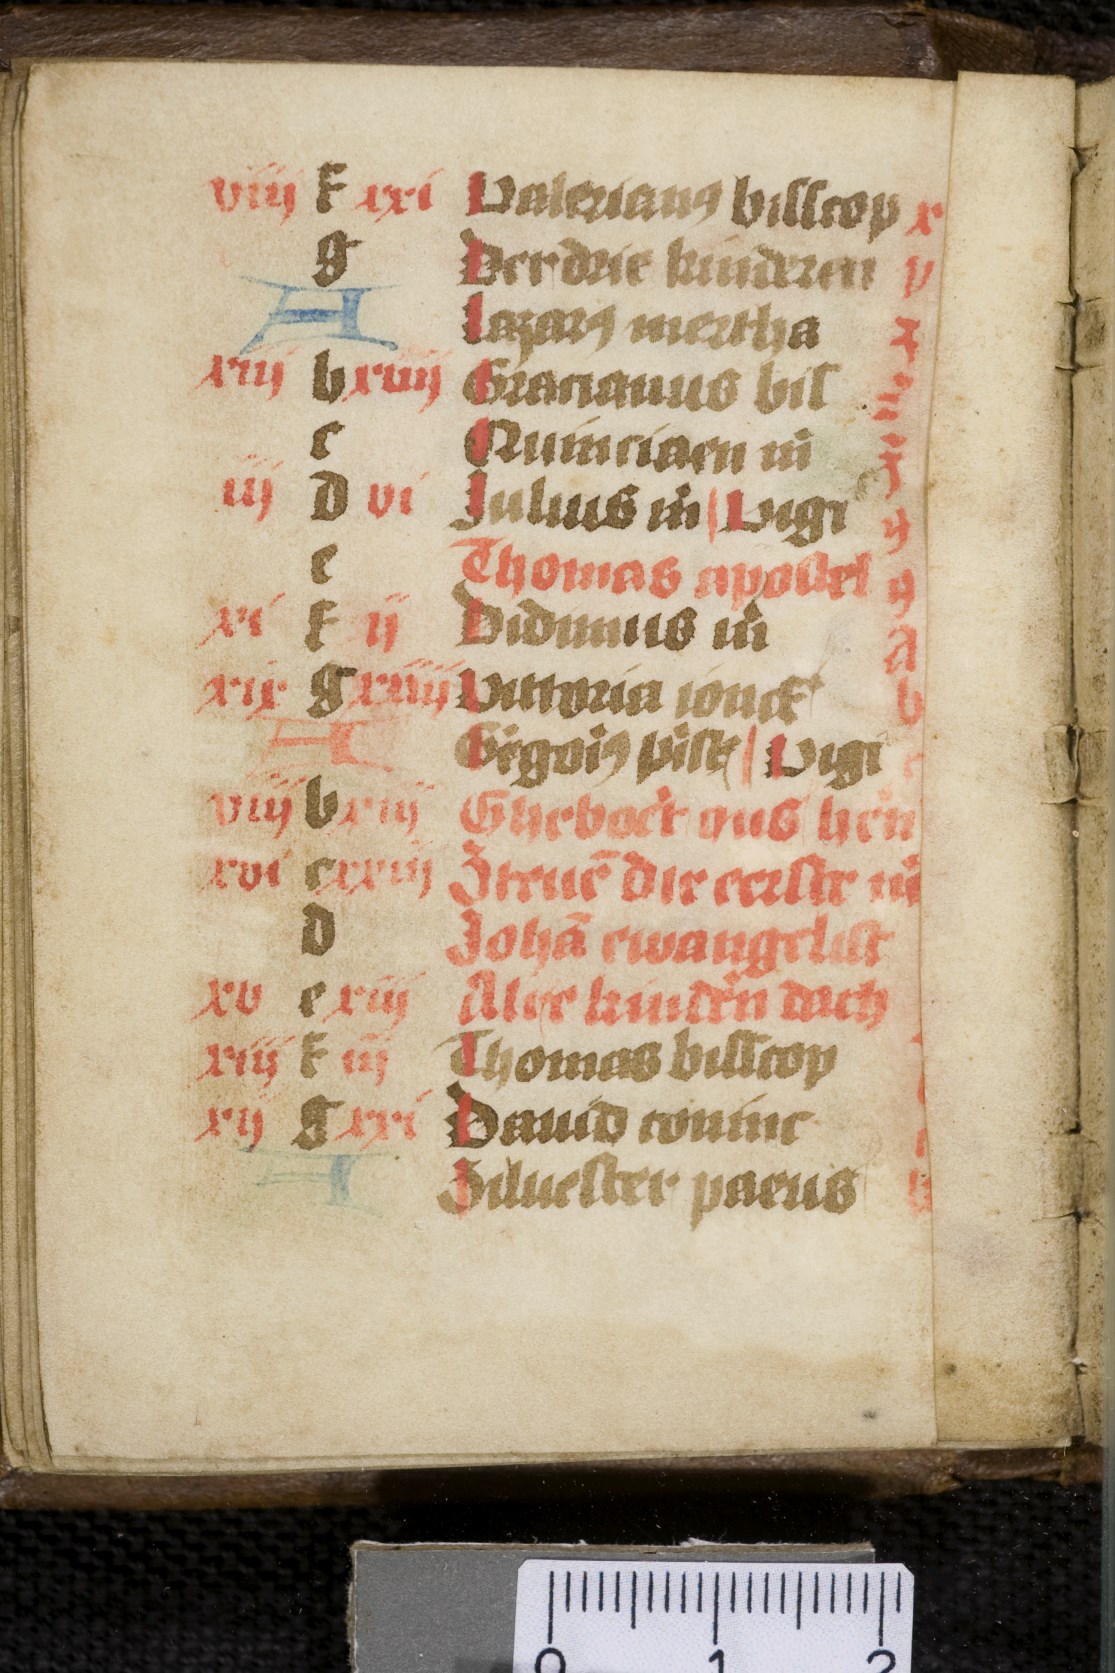 viij f xxi Valerianꝯ bisscop
g Der drie kinderen
A lazarꝯ mertha
xiij b xiiij Gracianus bis
c Quinciaen m̄
iij d vi Julius m̄ | Vigi
e Thomas apostel
xi f ij Didimus m̄
xix g xiiij Victoria ionck
A Grgoiꝯ pᵢsk | Vigi
viij b xiij Gheboert ons hen
xvi c xxiij Steuē die eerste m̄
d Johā ewangelist
xv e xiij Alre kinder̄n dach
xiij f iij Thomas bisscop
xij g xxi Dauid coninc
A Siluester paeus
0 1 2